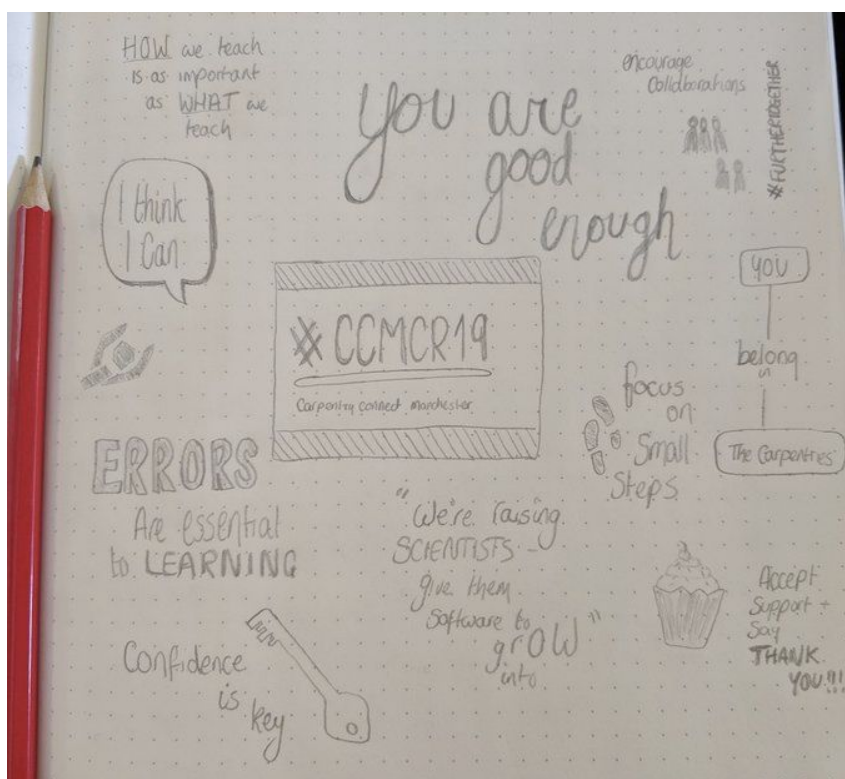 HOW we teach
is as important
as WHAT we
teach
you are
good
enough
encourage
Collaborations
#FURTHERTOGETHER
I think
I Can
#CCMCR19
Carpentry connect manchester
YOU
belong
in
The Carpentries
focus
on
Small
Steps
ERRORS
Are essential
to LEARNING
"We're raising
SCIENTISTS -
give them
Software to
grow"
into
Accept
Support +
Say
THANK
YOU!!!
Confidence
is
key